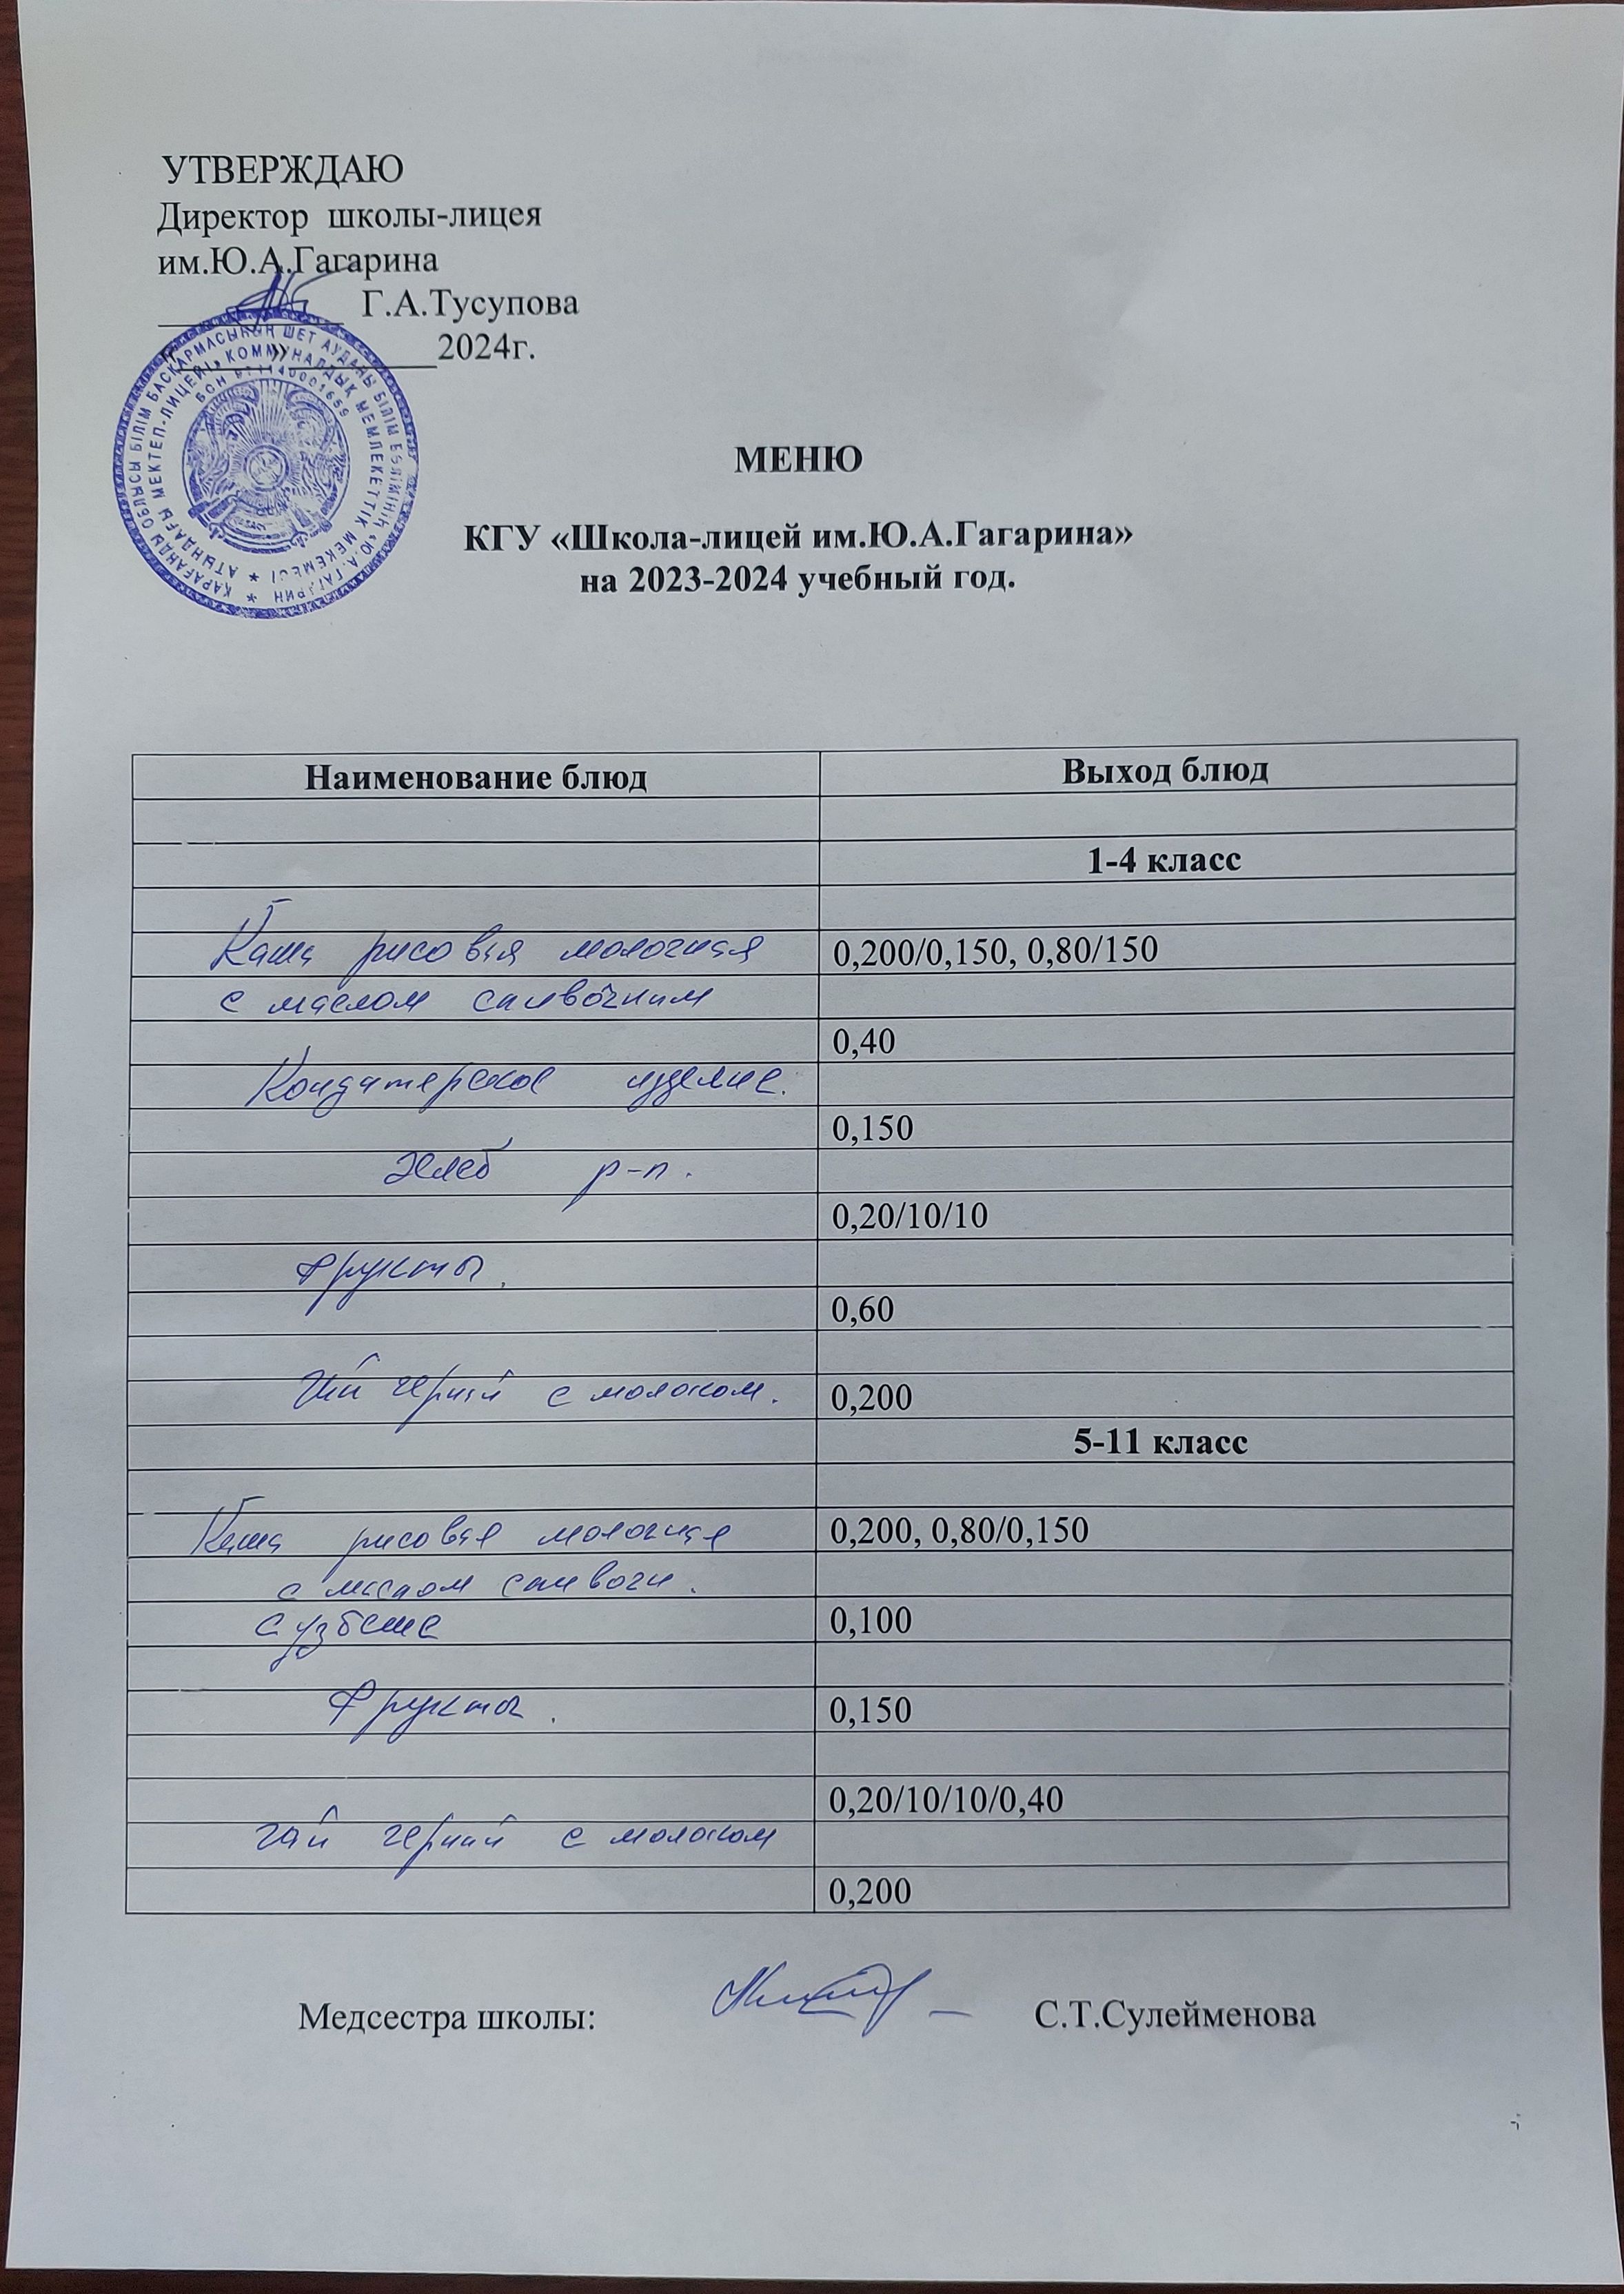 УТВЕРЖДАЮ
Директор школы-лицея
им.Ю.А.Гагарина
Г.А.Тусупова
« » 2024г.
ҚАРАҒАНДЫ ОБЛЫСЫ БІЛІМ БАСҚАРМАСЫНЫҢ ШЕТ АУДАНЫ БІЛІМ БӨЛІМІНІҢ «Ю.А. ГАГАРИН
АТЫНДАҒЫ МЕКТЕП-ЛИЦЕЙІ» КОММУНАЛДЫҚ МЕМЛЕКЕТТІК МЕКЕМЕСІ
БСН
МЕНЮ
КГУ «Школа-лицей им.Ю.А.Гагарина»
на 2023-2024 учебный год.
Наименование блюд Выход блюд
1-4 класс
Каша рисовая молочная 0,200/0,150, 0,80/150
с маслом сливочним
0,40
Кондитерское изделие.
0,150
Хлеб р-п.
0,20/10/10
Фрукты.
0,60
Чай черний с молоком. 0,200
5-11 класс
Каша рисовая молочная 0,200, 0,80/0,150
с маслом сливочн.
0,100
Фрукты. 0,150
0,20/10/10/0,40
Чай черний с молоком
0,200
Медсестра школы: С.Т.Сулейменова